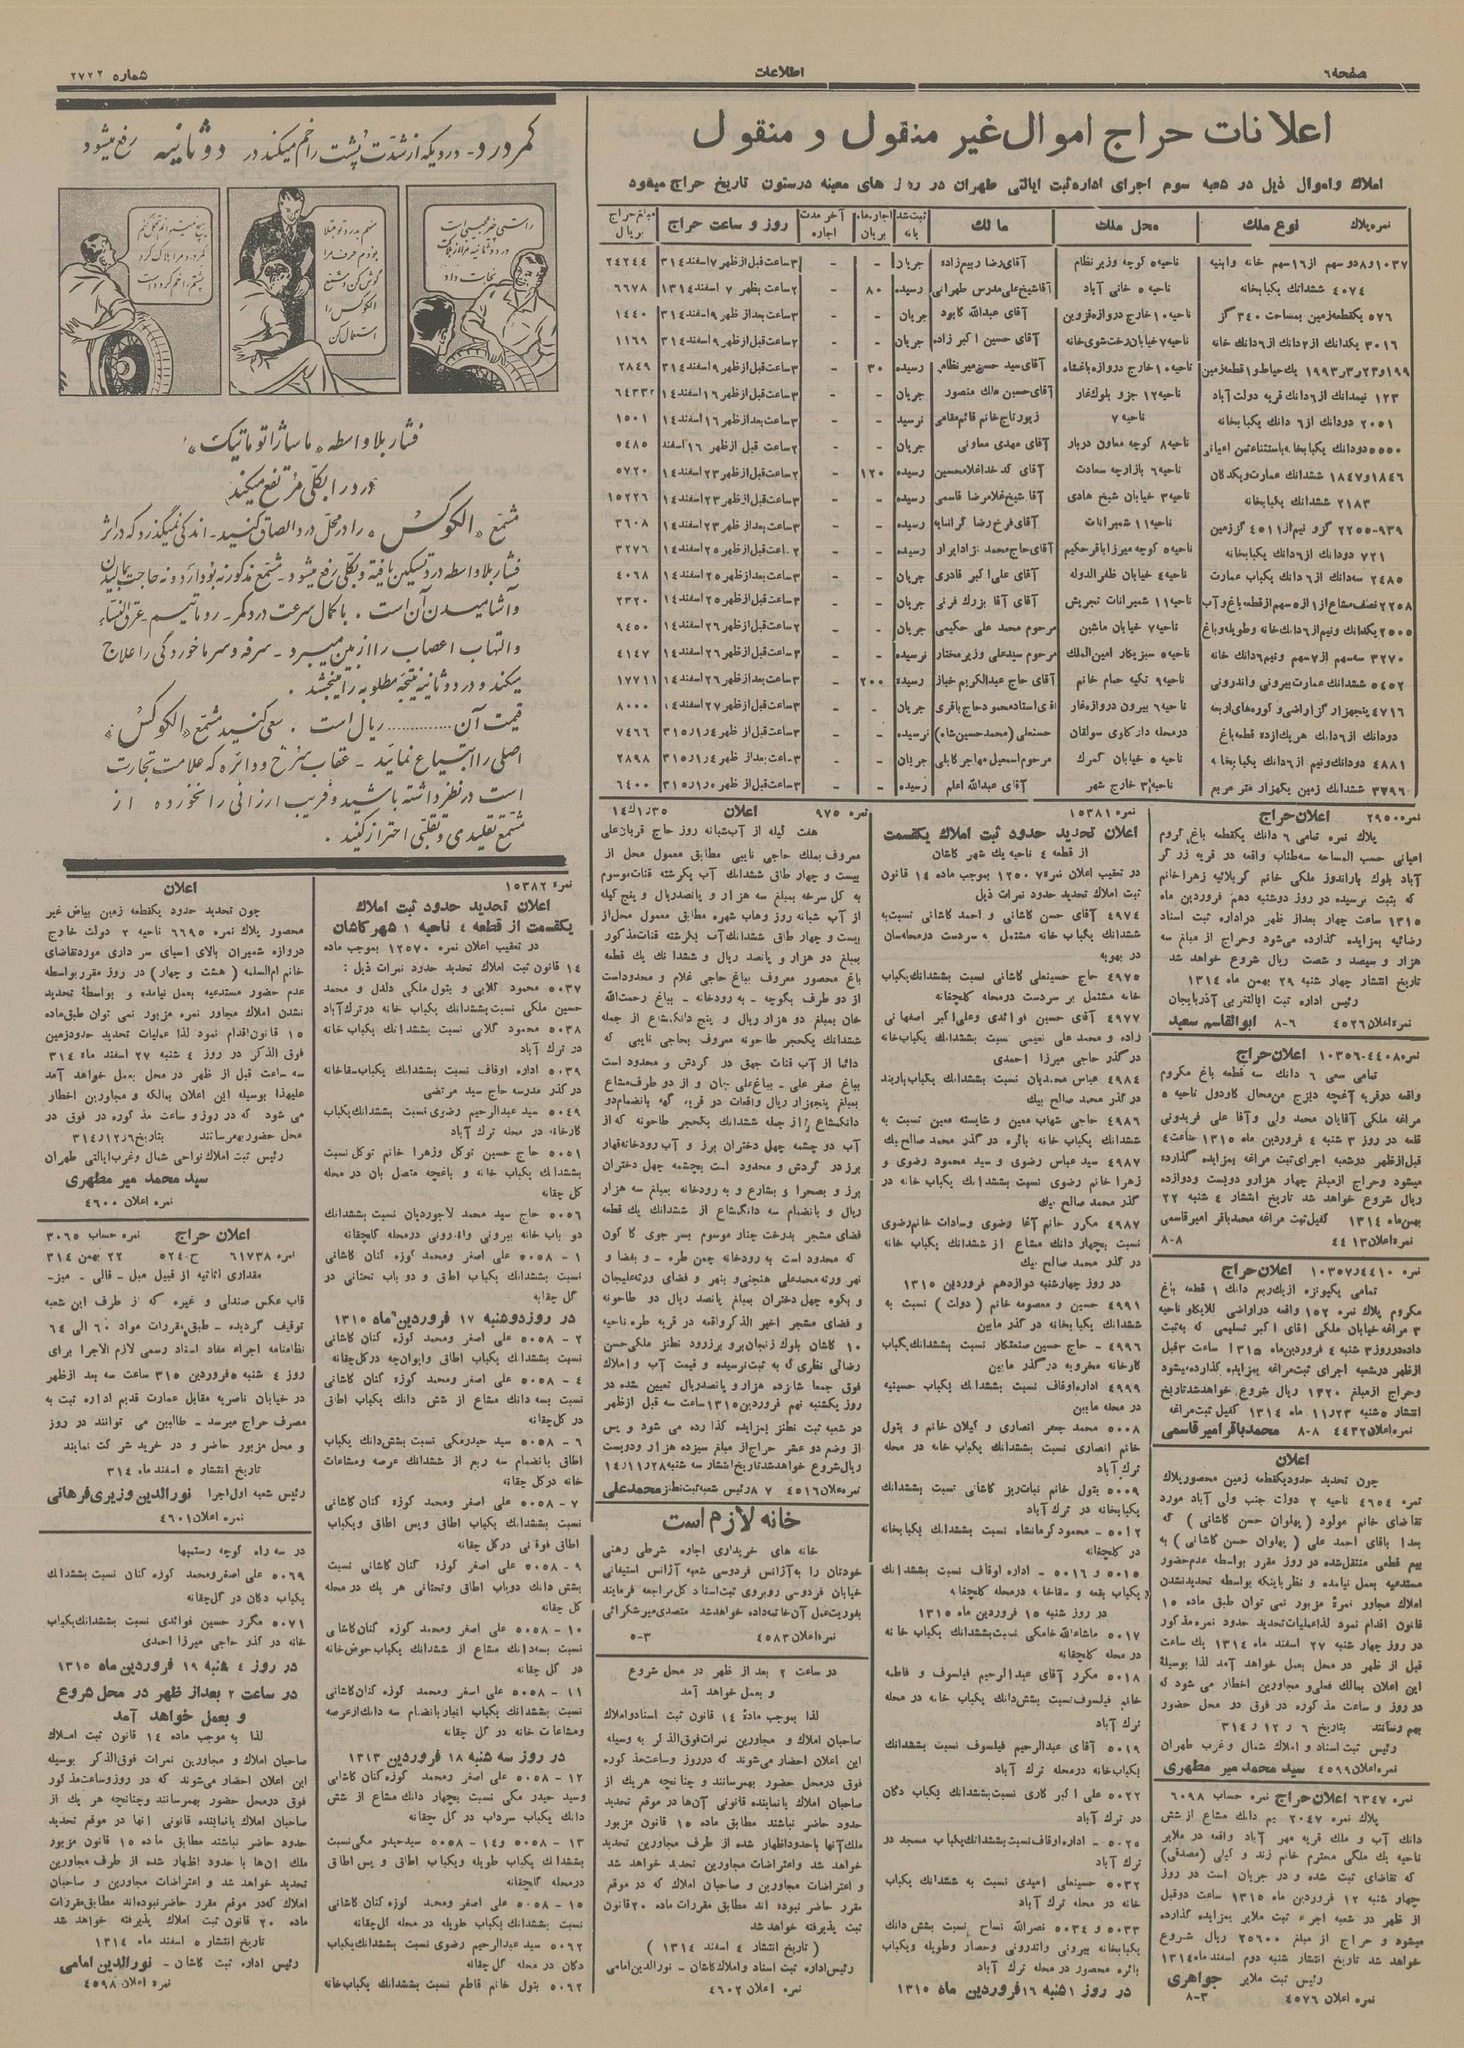 صفحه ۶
اطلاعات
شماره ۲۷۲۲
اعلانات حراج اموال غیر منقول و منقول
املاك و اموال ذیل در شعبه سوم اجرای اداره ثبت ایالتی طهران در روز های معینه در ستون تاریخ حراج میشود
نمره پلاك نوع ملك محل ملك مالك ثبت شده یا نه اجاره ماهیانه بریال آخر مدت اجاره روز و ساعت حراج مبلغ حراج بریال
ناحیه ۵ کوچه وزیر نظام آقای رضا رییم زاده جریان - - ۳ ساعت قبل از ظهر ۷ اسفند ۳۱۴ ۲۴۲۴۴
۴۰۷۴ ششدانك یکبابخانه ناحیه ۵ خانی آباد آقا شیخ علی مدرس طهرانی رسیده ۸۰ - ۲ ساعت بظهر ۷ اسفند ۱۳۱۴ ۶۶۷۸
۵۷۶ یکقطعه زمین بمساحت ۳۴۰ گز ناحیه ۱۰ خارج دروازه قزوین آقای عبدالله کابود جریان - - ۳ ساعت بعد از ظهر ۹ اسفند ۳۱۴ ۱۴۴۰
۳۰۱۶ یکدانك از ۲ دانك از ۶ دانك خانه ناحیه ۷ خیابان رخت شوی خانه آقای حسین اکبر زاده جریان - - ۲ ساعت قبل از ظهر ۹ اسفند ۳۱۴ ۱۱۶۹
ناحیه ۱۰ خارج دروازه باغشاه آقای سید حسن میر نظام رسیده ۳۰ - ۳ ساعت قبل از ظهر ۹ اسفند ۳۱۴ ۲۸۴۹
۱۲۳ نیمدانك از ۶ دانك قریه دولت آباد ناحیه ۱۲ جزو بلوك غار آقای حسین ملك منصور جریان
۲۰۵۱ دودانك از ۶ دانك یکبابخانه ناحیه ۷ زیور تاج خانم قائم مقامی نرسید - - ۳ ساعت بعد از ظهر ۱۶ اسفند ۱۴ ۱۵۰۱
ناحیه ۸ کوچه معاون دربار آقای مهدی معاونی جریان - - ۲ ساعت قبل از ظهر ۱۶ اسفند ۵۴۸۵
ناحیه ۶ بازارچه سعادت آقای کد خدا غلامحسین رسیده ۱۲۰ - ۲ ساعت قبل از ظهر ۲۳ اسفند ۱۴ ۵۷۲۰
۲۱۸۳ ششدانك یکبابخانه ناحیه ۳ خیابان شیخ هادی آقا شیخ غلامرضا قاسمی رسیده - - ۳ ساعت قبل از ظهر ۲۳ اسفند ۱۴ ۱۵۲۲۶
ناحیه ۱۱ شمیرانات رسیده - - ۳ ساعت بعد از ظهر ۲۳ اسفند ۱۴ ۳۶۰۸
۷۲۱ دودانك از ۶ دانك یکبابخانه ناحیه ۵ کوچه میرزا باقر حکیم جریان ۳۲۷۶
۲۴۸۵ سه دانك از ۶ دانك یکباب عمارت ناحیه ۴ خیابان ظفر الدوله آقای علی اکبر قادری جریان - - ۳ ساعت بعد از ظهر ۲۵ اسفند ۱۴ ۴۰۶۸
ناحیه ۱۱ شمیرانات تجریش آقای آقا بزرك فرنی جریان ۲۳۲۰
ناحیه ۷ خیابان ماشین مرحوم محمد علی حکیمی جریان - - ۲ ساعت قبل از ظهر ۲۶ اسفند ۱۴ ۹۴۵۰
۳۲۷۰ سه سهم از ۷ سهم و نیم ۶ دانك خانه ناحیه ۵ سبزیکار امین الملك مرحوم سید علی وزیر مختار نرسیده ۴۱۴۷
۵۴۵۲ ششدانك عمارت بیرونی و اندرونی ناحیه ۹ تکیه حمام خانم آقای حاج عبدالکریم خباز رسیده ۲۰۰ - ۳ ساعت بعد از ظهر ۲۶ اسفند ۱۴ ۱۷۷۱۱
ناحیه ۶ بیرون دروازه غار جریان ۸۰۰۰
نرسیده ۷۴۶۶
ناحیه ۵ خیابان گمرك مرحوم اسمعیل مهاجر کابلی جریان ۲۸۹۸
۳۷۹۶ ششدانك زمین یکهزار متر مربع ناحیه ۳ خارج شهر آقای عبدالله اعلم رسیده ۶۴۰۰
کمر درد - دردیکه از شدت پشت را خم میکند در دو ثانیه رفع میشود
راستی چیز عجیبی است در دو ثانیه مرا از هلاکت نجات داد
منهم بدرد تو مبتلا بودم حرف مرا گوش کن و مشمع الکوکس را استعمال کن
هیچ نمیتوانم تحمل کنم کمر درد مرا هلاك کرد پشتم را خم کرده است
فشار بلا واسطه «ماساژ اتوماتیك»
درد را بکلی مرتفع میکند
مشمع «الکوکس» را در محل درد الصاق کنید - اندکی نمیگذرد که در اثر
فشار بلا واسطه درد تسکین یافته و بکلی رفع میشود - مشمع مذکور نه بو دارد و نه حاجت بمالیدن
و آشامیدن آن است . با کمال سرعت درد کمر - روماتیسم - عرق النساء
و التهاب اعصاب را از بین میبرد - سرفه و سرما خوردگی را علاج
میکند و در دو ثانیه نتیجه مطلوبه را میبخشد .
قیمت آن ............ ریال است . سعی کنید مشمع «الکوکس»
اصلی را ابتیاع نمائید - عقاب سرخ و دائره که علامت تجارت
است در نظر داشته باشید و فریب ارزانی را نخورده از
مشمع تقلیدی و تقلبی احتراز کنید .
نمره ۲۹۵۰۰ اعلان حراج
پلاك نمره تمامی ۶ دانك یکقطعه باغ کروم
اعیانی حسب المساحه سه طناب واقعه در قریه زر گر
آباد بلوك باراندوز ملکی خانم کربلائیه زهرا خانم
که بثبت نرسیده در روز دوشنبه دهم فروردین ماه
۱۳۱۵ ساعت چهار بعد از ظهر در اداره ثبت اسناد
رضائیه بمزایده گذارده می‌شود و حراج از مبلغ سه
هزار و سیصد و شصت ریال شروع خواهد شد
تاریخ انتشار چهار شنبه ۲۹ بهمن ماه ۱۳۱۴
رئیس اداره ثبت ایالتی غربی آذربایجان
نمره اعلان ۴۵۲۶ ۸-۶ ابوالقاسم سعید
نمره ۴۴۰۸-۱۰۳۵۶ اعلان حراج
تمامی سعی ۶ دانك سه قطعه باغ مکروم
مراغه ملکی آقایان محمد ولی و آقا علی فریدونی
قلعه در روز ۳ شنبه ۴ فروردین ماه ۱۳۱۵ ساعت ۴
قبل از ظهر در شعبه اجرای ثبت مراغه بمزایده گذارده
میشود و حراج از مبلغ چهار هزار و دویست و دوازده
ریال شروع خواهد شد تاریخ انتشار ۴ شنبه ۲۲
بهمن ماه ۱۳۱۴ کفیل ثبت مراغه محمد باقر امیر قاسمی
نمره اعلان ۴۴۱۳ ۸-۸
نمره ۴۴۱۰ر۱۰۳۵۷ اعلان حراج
مکروم پلاك نمره ۱۵۲ واقعه در اراضی للایکلو ناحیه
۳ مراغه خیابان ملکی اقای اکبر تسلیمی که به ثبت
داده در روز ۳ شنبه ۴ فروردین ماه ۳۱۵ ساعت ۳ قبل
از ظهر در شعبه اجرای ثبت مراغه بمزایده گذارده میشود
و حراج از مبلغ ۱۳۲۰ ریال شروع خواهد شد تاریخ
انتشار ۵ شنبه ۲۳ر۱۱ ماه ۱۳۱۴ کفیل ثبت مراغه
نمره اعلان ۴۴۳۲ ۸-۸ محمد باقر امیر قاسمی
اعلان
چون تحدید حدود یکقطعه زمین محصور پلاك
نمره ۴۶۵۴ ناحیه ۲ دولت جنب ولی آباد مورد
تقاضای خانم مولود ( پهلوان حسن کاشانی ) که
بعدا باقای احمد علی ( پهلوان حسن کاشانی ) به
بیع قطعی منتقل شده در روز مقرر بواسطه عدم حضور
مستدعیه بعمل نیامده و نظر باینکه بواسطه تحدید نشدن
املاك مجاور نمرهٔ مزبور نمی توان طبق ماده ۱۵
قانون اقدام نمود لذا عملیات تحدید حدود نمره مذکور
در روز چهار شنبه ۲۷ اسفند ماه ۱۳۱۴ یك ساعت
قبل از ظهر در محل بعمل خواهد آمد لذا بوسیلهٔ
این اعلان بمالك فعلی و مجاورین اخطار می شود که
در روز و ساعت مذ کوره در فوق در محل حضور
بهم رسانند بتاریخ ۶ ر ۱۲ ر ۳۱۴
رئیس ثبت اسناد و املاك شمال و غرب طهران
نمره اعلان ۴۵۹۹ سید محمد میر مطهری
نمره ۶۳۴۷ اعلان حراج نمره حساب ۶۰۹۸
پلاك نمره ۲۰۴۷ نیم دانك مشاع از شش
دانك آب و ملك قریه مهر آباد واقعه در ملایر
ناحیه یك ملکی محترم خانم زند و کیلی (مصدقی)
که تقاضای ثبت شده و در جریان است در روز
چهار شنبه ۱۲ فروردین ماه ۱۳۱۵ ساعت دو قبل
از ظهر در شعبه اجراء ثبت ملایر بمزایده گذارده
میشود و حراج از مبلغ ۲۵۶۰۰ ریال شروع
خواهد شد تاریخ انتشار شنبه دوم اسفند ماه ۱۳۱۴
رئیس ثبت ملایر جواهری
نمره اعلان ۴۵۷۶ ۸-۳
نمره ۱۵۳۸۱
اعلان تحدید حدود ثبت املاك یکقسمت
از قطعه ۴ ناحیه یك شهر کاشان
در تعقیب اعلان نمره ۱۲۵۰۷ بموجب ماده ۱۴ قانون
ثبت املاك تحدید حدود نمرات ذیل
۴۹۷۴ آقای حسن کاشانی و احمد کاشانی نسبت به
۴۹۷۵ حاج حسینعلی کاشانی نسبت بششدانك یکباب
خانه مشتمل بر سردست در محله کلچقانه
۴۹۷۷ آقای حسین فوائدی و علی اکبر اصفهانی
زاده و محمد علی نعیمی نسبت بششدانك یکباب خانه
در گذر حاجی میرزا احمدی
۴۹۸۴ عباس محمدیان نسبت بششدانك یکباب باربند
در گذر محمد صالح بیك
۴۹۸۶ حاجی شهاب معین و شایسته معین نسبت به
ششدانك یکباب خانه بائره در گذر محمد صالح بیك
۴۹۸۷ سید عباس رضوی و سید محمود رضوی و
زهرا خانم رضوی نسبت بششدانك یکباب خانه در
گذر محمد صالح بیك
۴۹۸۷ مکرر خانم آغا رضوی و سادات خانم رضوی
نسبت بچهار دانك مشاع از ششدانك یکباب خانه
در گذر محمد صالح بیك
در روز چهارشنبه دوازدهم فروردین ۱۳۱۵
۴۹۹۱ حسین و معصومه خانم ( دولت ) نسبت به
ششدانك یکبابخانه در گذر مابین
۴۹۹۶ - حاج حسین صنعتکار نسبت بششدانك یکباب
کارخانه مخروبه در گذر مابین
۴۹۹۹ اداره اوقاف نسبت بششدانك یکباب حسینیه
در محله مابین
۵۰۰۸ محمد جعفر انصاری و گیلان خانم و بتول
خانم انصاری نسبت بششدانك یکباب خانه در محله
ترك آباد
۵۰۰۹ بتول خانم نبات ریز کاشانی نسبت بششدانك
یکبابخانه در ترك آباد
۵۰۱۲ - محمود کرمانشاه نسبت بششدانك یکبابخانه
در کلچقانه
۵۰۱۵ و ۵۰۱۶ - اداره اوقاف نسبت بششدانك
یکباب بقعه و سقاخانه در محله کلچقانه
در روز شنبه ۱۵ فروردین ماه ۱۳۱۵
۵۰۱۷ ماشاءالله خامکی نسبت بششدانك یکباب خانه
در محله کلچقانه
۵۰۱۸ مکرر آقای عبدالرحیم فیلسوف و فاطمه
خانم فیلسوف نسبت بشش دانك یکباب خانه در محله
ترك آباد
۵۰۱۹ آقای عبدالرحیم فیلسوف نسبت بششدانك
یکباب خانه در محله ترك آباد
۵۰۲۲ علی اکبر کاری نسبت بششدانك یکباب دکان
در ترك آباد
۵۰۲۵ - اداره اوقاف نسبت بششدانك یکباب مسجد در
ترك آباد
۵۰۳۲ حسینعلی امیدی نسبت به ششدانك یکباب
خانه در محله ترك آباد
۵۰۳۳ و ۵۰۳۴ نصرالله نساج نسبت بشش دانك
یکبابخانه بیرونی و اندرونی و حصار و طویله و یکباب
بائره محصور در محله ترك آباد
در روز ۱ شنبه ۱۶ فروردین ماه ۱۳۱۵
نمره ۹۷۵ اعلان
هفت گیله از آب شبانه روز حاج قربانعلی
معروف بملك حاجی نایبی مطابق معمول محل از
بیست و چهار طاق ششدانك آب یکرشته قنات موسوم
به کل سرخه بمبلغ سه هزار و پانصد ریال و پنج گیله
از آب شبانه روز وهاب شهره مطابق معمول محل از
بیست و چهار طاق ششدانك آب یکرشته قنات مذکور
بمبلغ دو هزار و پانصد ریال و ششدانك یك قطعه
باغ محصور معروف بباغ حاجی غلام و محدود است
از دو طرف بکوچه - به رودخانه - بباغ رحمت الله
خان بمبلغ دو هزار ریال و پنج دانك مشاع از جمله
ششدانك یکحجر طاحونه معروف بحاجی نایبی که
دائما از آب قنات جهق در گردش و محدود است
بباغ صفر علی - بباغ علی جان و از دو طرف مشاع
آب دو چشمه چهل دختران برز و آب رودخانه قهار
برز در گردش و محدود است بچشمه چهل دختران
برز و بصحرا و بشارع و به رودخانه بمبلغ سه هزار
ریال و بانضمام سه دانك مشاع از ششدانك یك قطعه
فضای مشجر بدرخت چنار موسوم بسر جوی کا کون
که محدود است به رودخانه چمن طره - و بفضا و
نهر ورثه محمد علی هنجنی و بنهر و فضای ورثه علیجان
و بکوه چهل دختران بمبلغ پانصد ریال دو طاحونه
و فضای مشجر اخیر الذکر واقعه در قریه طره ناحیه
رضائی نظری که به ثبت نرسیده و قیمت آب و املاك
فوق جمعا شانزده هزار و پانصد ریال تعیین شده در
روز یکشنبه نهم فروردین ۱۳۱۵ ساعت سه قبل از ظهر
در شعبه ثبت نطنز بمزایده گذارده می شود و پس
از وضع دو عشر حراج از مبلغ سیزده هزار و دویست
ریال شروع خواهد شد تاریخ انتشار سه شنبه ۲۸ر۱۱ر۱۴
نمره اعلان ۴۵۱۶ ۷ ۸ رئیس شعبه ثبت نطنز محمد علی
خانه لازم است
خانه های خریداری اجاره شرطی رهنی
خودتان را به آژانس فردوسی شعبه آژانس استیفانی
خیابان فردوسی روبروی ثبت اسناد کل مراجعه فرمایند
بفوریت عمل آن خاتمه داده خواهد شد متصدی میر شکرائی
نمره اعلان ۴۵۸۳ ۵-۳
در ساعت ۲ بعد از ظهر در محل شروع
و بعمل خواهد آمد
لذا بموجب مادهٔ ۱۴ قانون ثبت اسناد و املاك
صاحبان املاك و مجاورین نمرات فوق الذکر به وسیله
این اعلان احضار می‌شوند که در روز و ساعت مذ کوره
فوق در محل حضور بهمرسانند و چنانچه هر یك از
صاحبان املاك یا نماینده قانونی آن‌ها در موقع تحدید
حدود حاضر نباشند مطابق ماده ۱۵ قانون مزبور
ملك آنها با حدود اظهار شده از طرف مجاورین تحدید
خواهد شد و اعتراضات مجاورین تحدید خواهد شد
و اعتراضات مجاورین و صاحبان املاك که در موقع
مقرر حاضر نبوده اند مطابق مقررات ماده ۲۰ قانون
ثبت پذیرفته خواهد شد
( تاریخ انتشار ۴ اسفند ۱۳۱۴ )
رئیس اداره ثبت اسناد و املاك کاشان - نورالدین امامی
نمره اعلان ۴۶۰۲
نمره ۱۵۳۸۲
اعلان تحدید حدود ثبت املاك
یکقسمت از قطعه ۴ ناحیه ۱ شهر کاشان
در تعقیب اعلان نمره ۱۲۵۷۰ بموجب ماده
۱۴ قانون ثبت املاك تحدید حدود نمرات ذیل :
۵۰۳۷ محمود گلابی و بتول ملکی دلدل و محمد
حسین ملکی نسبت بششدانك یکباب خانه در ترك آباد
۵۰۳۸ محمود گلابی نسبت بششدانك یکباب خانه
در ترك آباد
۵۰۳۹ اداره اوقاف نسبت بششدانك یکباب سقاخانه
در گذر مدرسه حاج سید مرتضی
۵۰۴۹ سید عبدالرحیم رضوی نسبت بششدانك یکباب
کارخانه در محله ترك آباد
۵۰۵۱ حاج حسین توکل و زهرا خانم توکل نسبت
بششدانك یکباب خانه و باغچه متصل بان در محله
کل چقانه
۵۰۵۶ حاج سید محمد لاجوردیان نسبت بششدانك
دو باب خانه بیرونی و اندرونی در محله کلچقانه
۱ - ۵۰۵۸ علی اصغر و محمد کوزه کنان کاشانی
نسبت بششدانك یکباب اطاق و دو باب تحتانی در
گل چقانه
در روز دوشنبه ۱۷ فروردین ماه ۱۳۱۵
۲ - ۵۰۵۸ علی اصغر و محمد کوزه کنان کاشانی
نسبت بششدانك یکباب اطاق و ایوانچه در کل چقانه
۴ - ۵۰۵۸ علی اصغر و محمد کوزه کنان کاشانی
نسبت بسه دانك مشاع از شش دانك یکباب اطاق
در کل چقانه
۶ - ۵۰۵۸ سید حیدر مکی نسبت بشش دانك یکباب
اطاق بانضمام سه ربع از ششدانك عرصه و مشاعات
خانه در کل چقانه
۷ - ۵۰۵۸ علی اصغر و محمد کوزه کنان کاشانی
نسبت بششدانك یکباب اطاق و پس اطاق و یکباب
اطاق فوقانی در گل چقانه
۹ - ۵۰۵۸ علی اصغر کوزه کنان کاشانی نسبت
بشش دانك دو باب اطاق و تحتانی هر یك در محله
کل چقانه
۱۰ - ۵۰۵۸ علی اصغر و محمد کوزه کنان کاشانی
نسبت بسه دانك مشاع از ششدانك یکباب حوض خانه
در گل چقانه
۱۱ - ۵۰۵۸ علی اصغر و محمد کوزه کنان کاشانی
نسبت بششدانك یکباب انبار بانضمام سه دانك از عرصه
و مشاعات خانه در گل چقانه
در روز سه شنبه ۱۸ فروردین ۱۳۱۳
۱۲ - ۵۰۵۸ علی اصغر و محمد کوزه کنان کاشانی
و سید حیدر مکی نسبت بچهار دانك مشاع از شش
دانك یکباب سرداب در گل چقانه
۱۳ - ۵۰۵۸ و ۱۴ - ۵۰۵۸ سید حیدر مکی نسبت
بششدانك یکباب طویله و یکباب اطاق و پس اطاق
در محله گلچقانه
۱۵ - ۵۰۵۸ علی اصغر و محمد کوزه کنان کاشانی
نسبت بششدانك یکباب طویله در محله گل چقانه
۵۰۶۲ سید عبدالرحیم رضوی نسبت بششدانك یکباب
دکان در محله گل چقانه
۵۰۶۲ بتول خانم قاطع نسبت بششدانك یکباب خانه
اعلان
چون تحدید حدود یکقطعه زمین بیاض غیر
محصور پلاك نمره ۶۶۹۵ ناحیه ۲ دولت خارج
دروازه شمیران بالای آسیای سر داری مورد تقاضای
خانم ام السلمه ( هشت و چهار ) در روز مقرر بواسطه
عدم حضور مستدعیه بعمل نیامده و بواسطهٔ تحدید
نشدن املاك مجاور نمره مزبور نمی توان طبق ماده
۱۵ قانون اقدام نمود لذا عملیات تحدید حدود زمین
فوق الذکر در روز ۴ شنبه ۲۷ اسفند ماه ۳۱۴
سه ساعت قبل از ظهر در محل بعمل خواهد آمد
علیهذا بوسیله این اعلان بمالکه و مجاورین اخطار
می شود که در روز و ساعت مذ کوره در فوق در
محل حضور بهمرسانند بتاریخ ۶ر۱۲ر۳۱۴
رئیس ثبت املاك نواحی شمال و غرب ایالتی طهران
سید محمد میر مطهری
نمره اعلان ۴۶۰۰
اعلان حراج نمره حساب ۳۰۶۵
نمره ۶۱۷۳۸ ح-۵۲۴ ۲۲ بهمن ۳۱۴
مقداری اثاثیه از قبیل مبل - قالی - میز-
قاب عکس صندلی و غیره که از طرف این شعبه
توقیف گردیده - طبق مقررات مواد ۶۰ الی ۶۴
نظامنامه اجراء مفاد اسناد رسمی لازم الاجرا برای
روز ۴ شنبه ۵ فروردین ۳۱۵ ساعت سه بعد از ظهر
در خیابان ناصریه مقابل عمارت قدیم اداره ثبت به
مصرف حراج میرسد - طالبین می توانند در روز
و محل مزبور حاضر و در خرید شر کت نمایند
تاریخ انتشار ۵ اسفند ماه ۳۱۴
رئیس شعبه اول اجرا نورالدین وزیری فرهانی
نمره اعلان ۴۶۰۱
در سه راه کوچه رستمیها
۵۰۶۹ علی اصغر و محمد کوزه کنان نسبت بششدانك
یکباب دکان در گل چقانه
۵۰۷۱ مکرر حسین فوائدی نسبت بششدانك یکباب
خانه در گذر حاجی میرزا احمدی
در روز ۴ شنبه ۱۹ فروردین ماه ۱۳۱۵
در ساعت ۲ بعد از ظهر در محل شروع
و بعمل خواهد آمد
لذا به موجب ماده ۱۴ قانون ثبت املاك
صاحبان املاك و مجاورین نمرات فوق الذکر بوسیله
این اعلان احضار می‌شوند که در روز و ساعت مذ کور
فوق در محل حضور بهمرسانند و چنانچه هر یك از
صاحبان املاك یا نماینده قانونی انها در موقع تحدید
حدود حاضر نباشند مطابق ماده ۱۵ قانون مزبور
ملك ان‌ها با حدود اظهار شده از طرف مجاورین
تحدید خواهد شد و اعتراضات مجاورین و صاحبان
املاك که در موقع مقرر حاضر نبوده اند مطابق مقررات
ماده ۲۰ قانون ثبت املاك پذیرفته خواهد شد
تاریخ انتشار ۵ اسفند ماه ۱۳۱۴
رئیس اداره ثبت کاشان - نورالدین امامی
نمره اعلان ۴۵۹۸